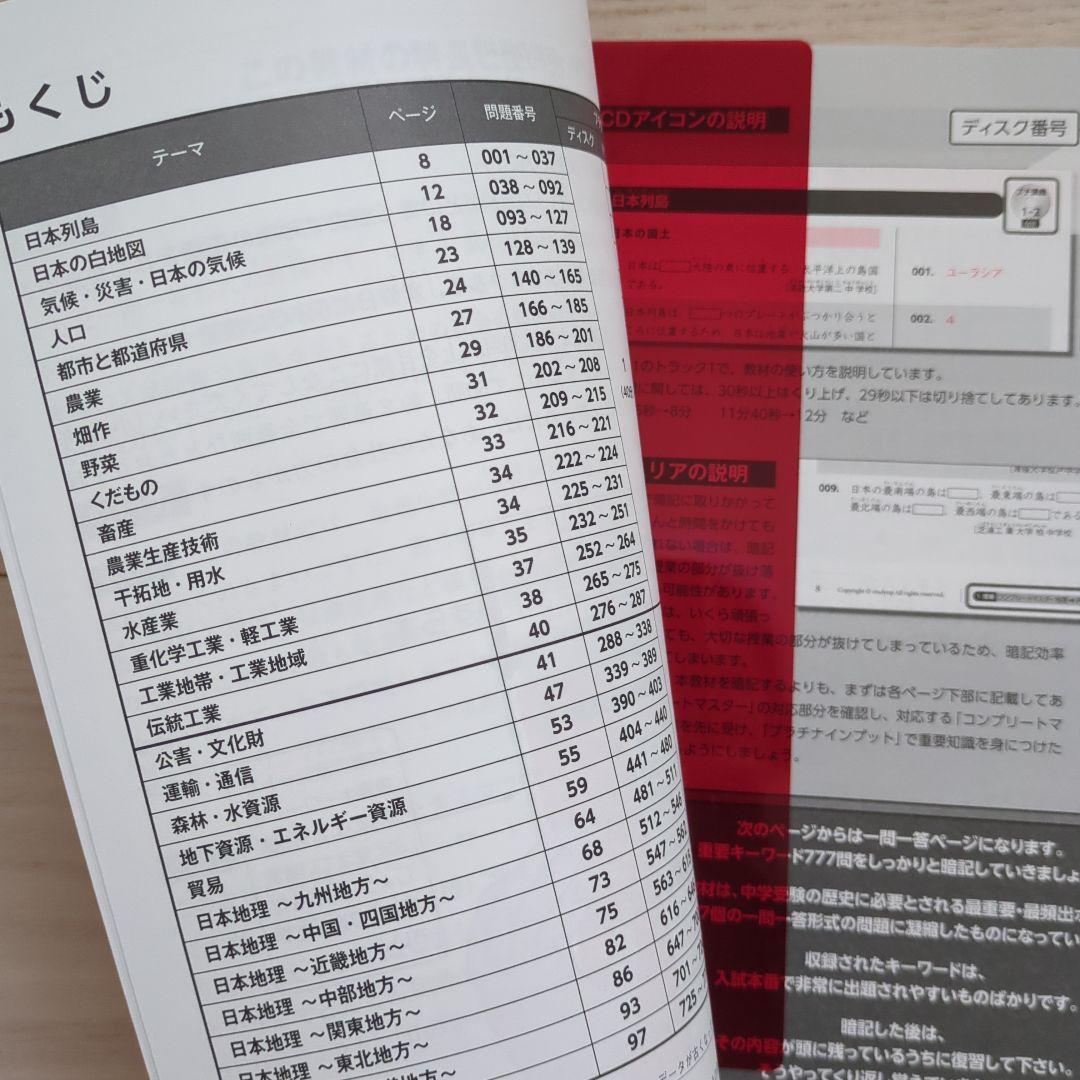 もくじ
テーマ ページ 問題番号
ディスク
日本列島 8 001～037
日本の白地図 12 038～092
気候・災害・日本の気候 18 093～127
人口 23 128～139
都市と都道府県 24 140～165
農業 27 166～185
畑作 29 186～201
野菜 31 202～208 1
くだもの 32 209～215
畜産 33 216～221
農業生産技術 34 222～224
干拓地・用水 34 225～231
水産業 35 232～251
重化学工業・軽工業 37 252～264
工業地帯・工業地域 38 265～275
伝統工業 40 276～287
公害・文化財 41 288～338
運輸・通信 47 339～389
森林・水資源 53 390～403
地下資源・エネルギー資源 55 404～440
貿易 59 441～480
日本地理 ～九州地方～ 64 481～511
日本地理 ～中国・四国地方～ 68 512～546
日本地理 ～近畿地方～ 73 547～562
日本地理 ～中部地方～ 75 563～615
日本地理 ～関東地方～ 82 616～
日本地理 ～東北地方～ 86 647～
93 701～
97 725～
CDアイコンの説明
ディスク番号
日本列島
プチ講義
1-2
日本の国土
日本は 大陸の東に位置する、太平洋上の島国
である。
001. ユーラシア
日本列島は、 つのプレートがぶつかり合うと
ころに位置するため、日本は地震や火山が多い国と
002. 4
1のトラック1で、教材の使い方を説明しています。
に関しては、30秒以上はくり上げ、29秒以下は切り捨てしてあります。
5秒→8分 11分40秒→12分 など
リアの説明
009. 日本の最南端の島は 、最東端の島は
最北端の島は 、最西端の島は である
[芝浦工業大学柏中学校]
8 Copyright © studyup All rights reserved.
暗記に取りかかって
んと時間をかけても
れない場合は、暗記
授業の部分が抜け落
可能性があります。
は、いくら頑張っ
ても、大切な授業の部分が抜けてしまっているため、暗記効率
てしまいます。
本教材を暗記するよりも、まずは各ページ下部に記載してあ
ートマスター」の対応部分を確認し、対応する「コンプリートマ
を先に受け、「プラチナインプット」で重要知識を身につけた
ようにしましょう。
次のページからは一問一答ページになります。
重要キーワード777問をしっかりと暗記していきましょ
材は、中学受験の歴史に必要とされる最重要・最頻出
7個の一問一答形式の問題に凝縮したものになってい
収録されたキーワードは、
入試本番で非常に出題されやすいものばかりです。
暗記した後は、
その内容が頭に残っているうちに復習して下さい。